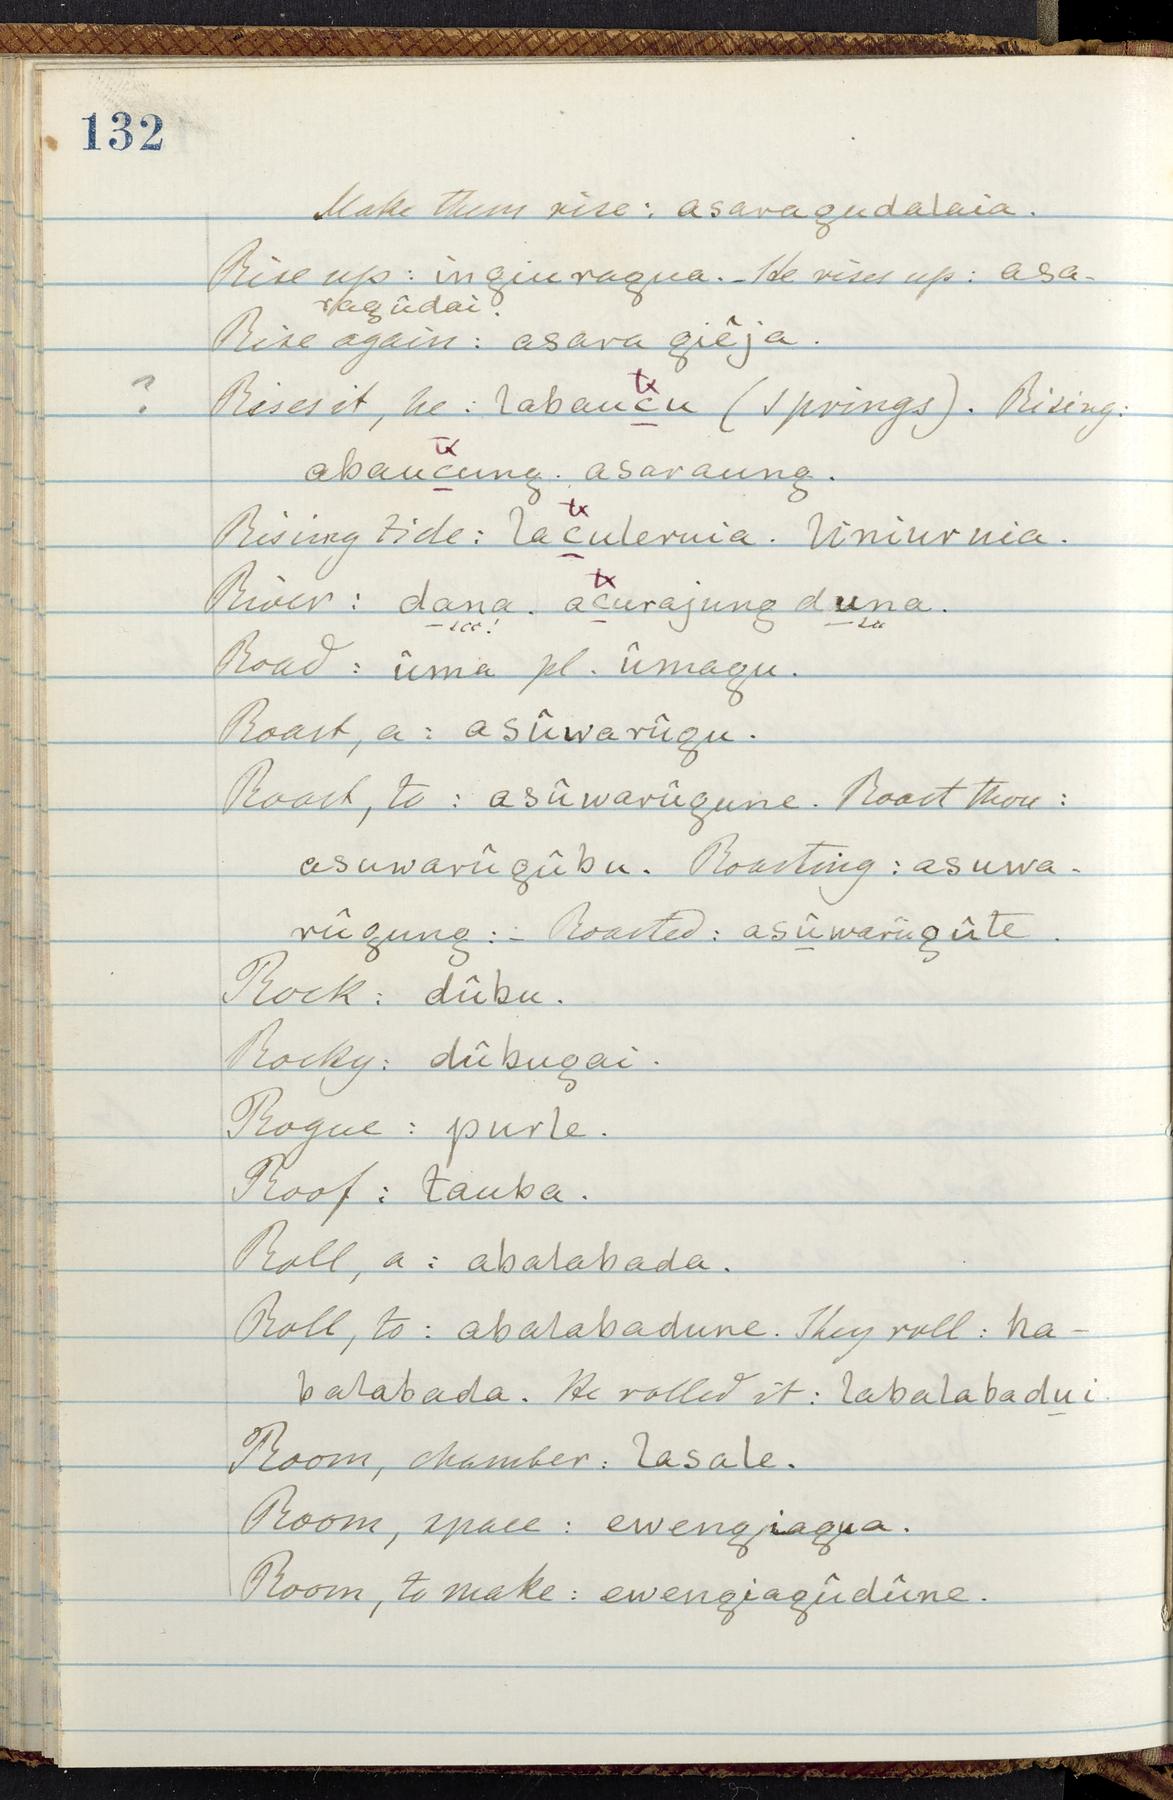 132
Make them rise: asaragudalaia.
Rise up: ingiuragua. - He rises up: asa-
ragûdai.
Rise again: asara giêja.
? Rises it, he: labaucu (springs). Rising:
tx
abaucung. asaraung.
tx
Rising tide: laculernia. Uniurnia.
tx
River: dana. acurajung duna.
tx
Road: ûma pl. ûmagu.
Roast, a: asûwarûgu.
Roast, to: asûwarûgune. Roast thou:
asuwarûgûbu. Roasting: asuwa-
rûgung: - Roasted: asûwarûgûte.
Rock: dûbu.
Rocky: dûbugai.
Rogue: purle.
Roof: tauba.
Roll, a: abalabada.
Roll, to: abalabadune. They roll: ha-
balabada. He rolled it: labalabadui.
Room, chamber: lasale.
Room, space: ewengiagua.
Room, to make: ewengiagûdûne.